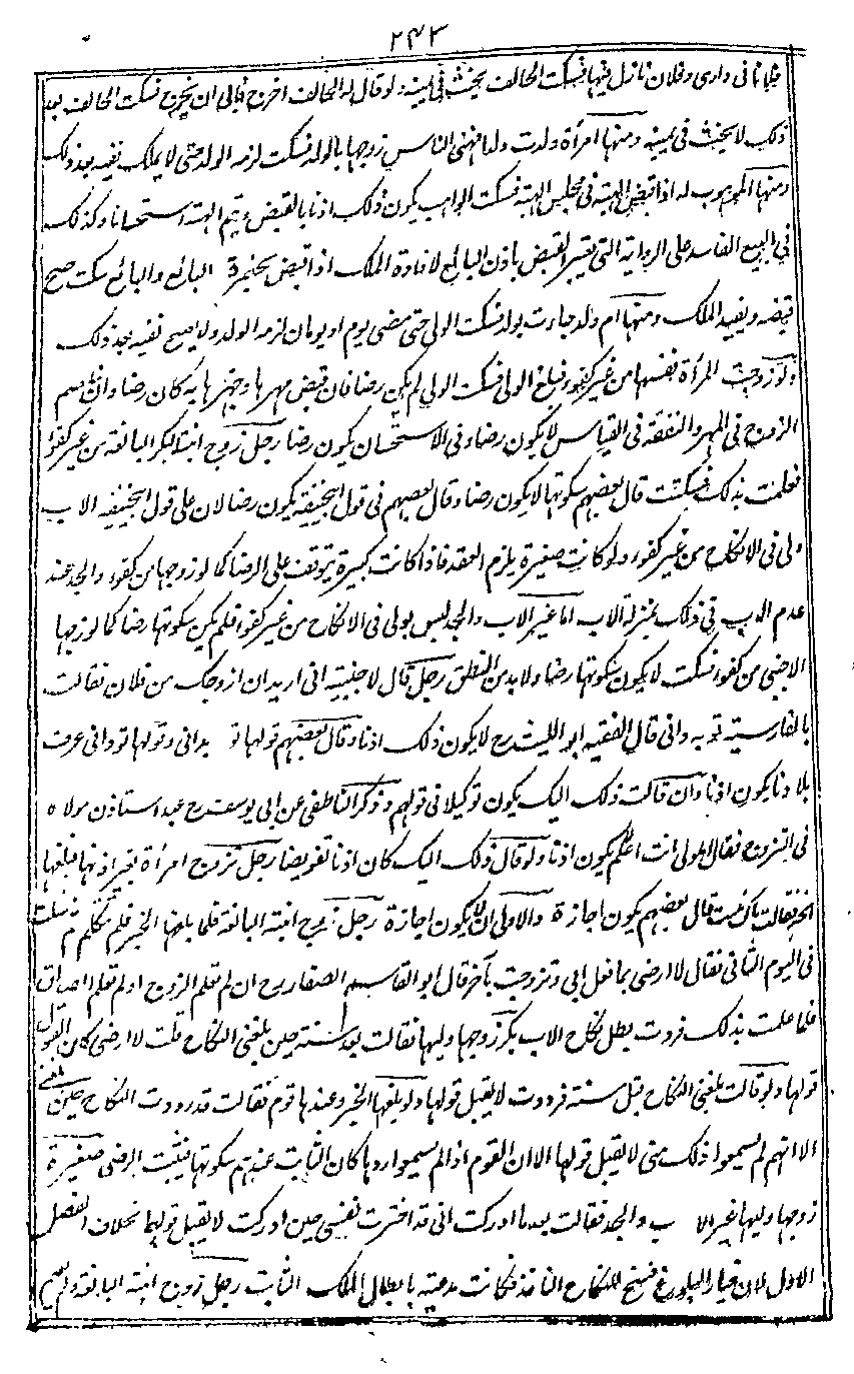 ۲۴۳
فلانا فى دارى وفلان نازل فيها فسكت الحالف يحنث فى يمينه ولو قال له الحالف اخرج فابى ان يخرج فسكت الحالف بعد
ذلك لا يحنث فى يمينه ومنها امرأة ولدت ولدا فهنى الناس زوجها بالولد فسكت لزمه الولد حتى لا يملك نفيه بعد ذلك
ومنها الموهوب له اذا قبض الهبة فى مجلس الهبة فسكت الواهب يكون ذلك اذنا بالقبض ويتم الهبة استحسانا وكذلك
فى البيع الفاسد على الرواية التى يعتبر القبض باذن البائع لافادة الملك اذا قبض بحضرة البائع والبائع سكت صح
قبضه ويفيد الملك ومنها ام ولد جاءت بولد فسكت المولى حتى مضى يوم او يومان لزمه الولد ولا يصح نفيه بعد ذلك
ولو زوجت المرأة نفسها من غير كفوء فبلغ الولى فسكت الولى لم يكن رضا فان قبض مهرها وجهزها به كان رضا وان خاصم
الزوج فى المهر والنفقة فى القياس لا يكون رضا وفى الاستحسان يكون رضا رجل زوج ابنته البكر البالغة من غير كفوء
فعلمت بذلك فسكتت قال بعضهم سكوتها لا يكون رضا وقال بعضهم فى قول ابيحنيفة يكون رضا لان على قول ابيحنيفه الاب
ولى فى الانكاح من غير كفوء ولو كانت صغيرة يلزم العقد فاذا كانت كبيرة يتوقف على الرضا كما لو زوجها من كفوء والجد عند
عدم الاب فى ذلك بمنزلة الاب اما غير الاب والجد ليس بولى فى الانكاح من غير كفوء فلم يكن سكوتها رضا كما لو زوجها
الاجنبى من كفوء فسكتت لا يكون سكوتها رضا ولا بد من النطق رجل قال لاجنبية انى اريد ان ازوجك من فلان فقالت
بالفارسية تو به دانى قال الفقيه ابو الليث رح لا يكون ذلك اذنا وقال بعضهم قولها تو بدانى وقولها تو دانى عرف
بلادنا يكون اذنا وان قالت ذلك اليك يكون توكيلا فى قولهم وذكر الناطفى عن ابى يوسف رح عبد استاذن مولاه
فى التزوج فقال المولى انت اعلم يكون اذنا ولو قال ذلك اليك كان اذنا تفويضا رجل تزوج امرأة بغير اذنها فبلغها
الخبر فقالت باك نيست قال بعضهم يكون اجازة والاولى ان لا يكون اجازة رجل زوج ابنته البالغة فلما بلغها الخبر فلم تكلم
فى اليوم الثانى فقال لا ارضى بما فعل ابى وتزوجت بآخر قال ابو القاسم الصفار رح ان لم تعلم الزوج او لم تعلم الصداق
فلما علمت بذلك فردت بطل نكاح الاب بكر زوجها وليها فقالت بعد سنة حين بلغنى النكاح قلت لا ارضى كان القول
قولها ولو قالت بلغنى النكاح قبل سنة فرددت لا يقبل قولها ولو بلغها الخبر وعندها قوم فقالت قد رددت النكاح حين بلغنى
الا انهم لم يسمعوا ذلك منى لا يقبل قولها الا ان القوم اذا لم يسمعوا ردها كان الثابت عندهم سكوتها فيثبت الرضى صغيرة
زوجها وليها غير الاب والجد فقالت بعد ما ادركت انى قد اخترت نفسى حين ادركت لا يقبل قولها بخلاف الفصل
الاول لان خيار البلوغ فسخ للنكاح النافذ فكانت مدعية بابطال الملك الثابت رجل زوج ابنته البالغة ولم يسم